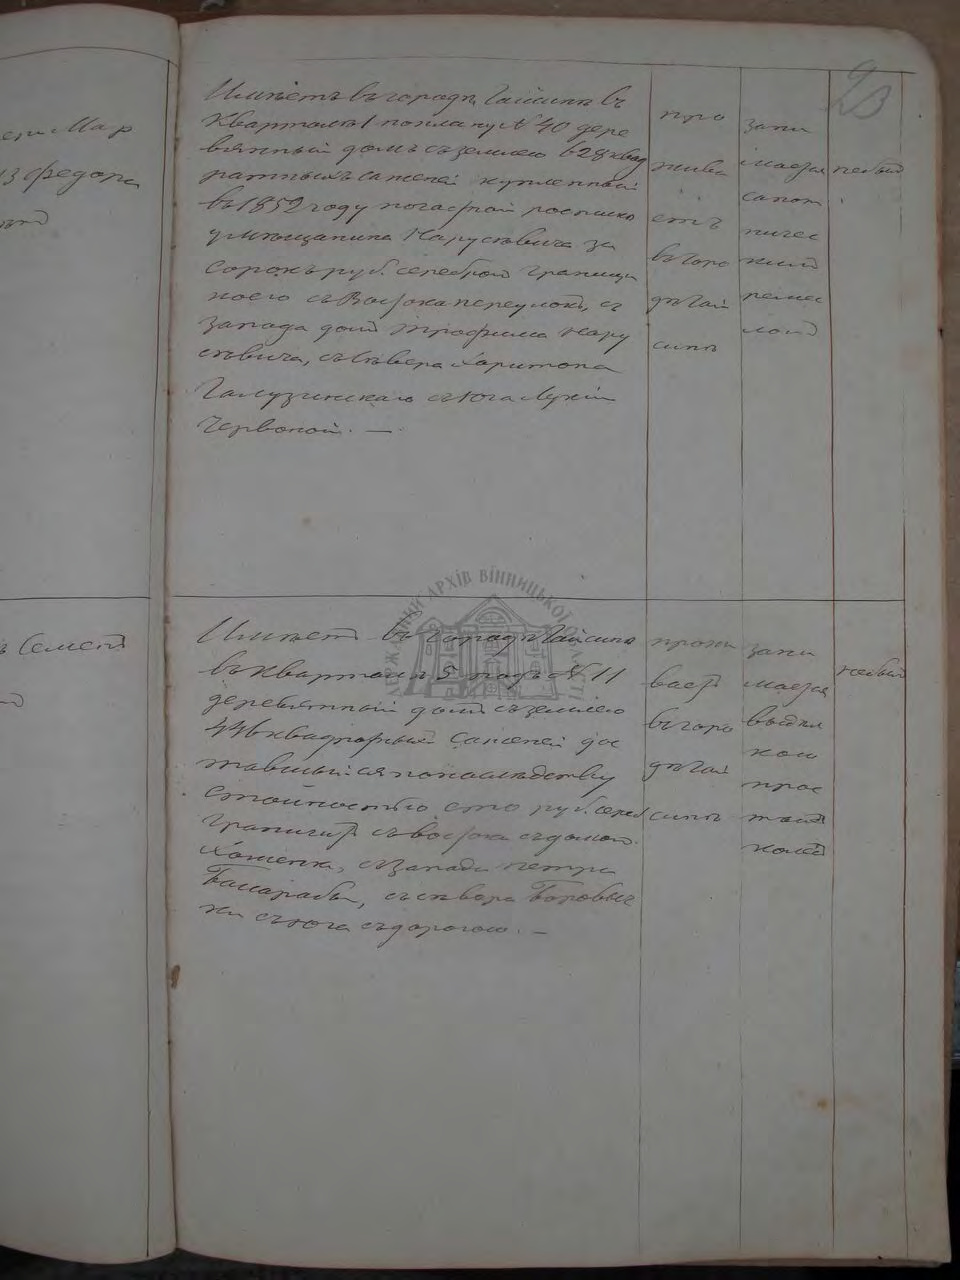 23
ери Мар
из Федора
Имѣетъ въ городѣ Гайсинѣ въ
Квартале 1 по плану № 40 дере
вянный домъ съ землею въ 28 квад
ратныхъ саженей купленный
въ 1852 году по частной росписке
у мѣщанина Карусевича за
сорокъ руб. серебром граница
коего съ Востока переулокъ, съ
запада домъ Трофима Кару
севича, съ Севера Харитона
Галузинскаго съ юга Лукіи
Червоной. —
про
жива
етъ
въ горо
дѣ Гай
синѣ
зани
мается
сапож
ничес
кимъ
ремес
лом
небылъ
ъ Семенъ
Имѣетъ въ городѣ Гайсинѣ
въ Квартале 5 подъ № 11
деревянный домъ съ землею
446 квадратныхъ саженей дос
тавшийся по наследству
стоимостью сто руб. сереб
граничитъ съ востока съ домомъ
съ запада Петра
съ севера
съ юга съ дорогою. —
прожи
ваетъ
въ горо
дѣ Гай
синѣ
зани
мается
выдел
кою
прос
тыхъ
кожъ
небылъ
ДЕРЖАВНИЙ АРХІВ ВІННИЦЬКОЇ ОБЛАСТІ